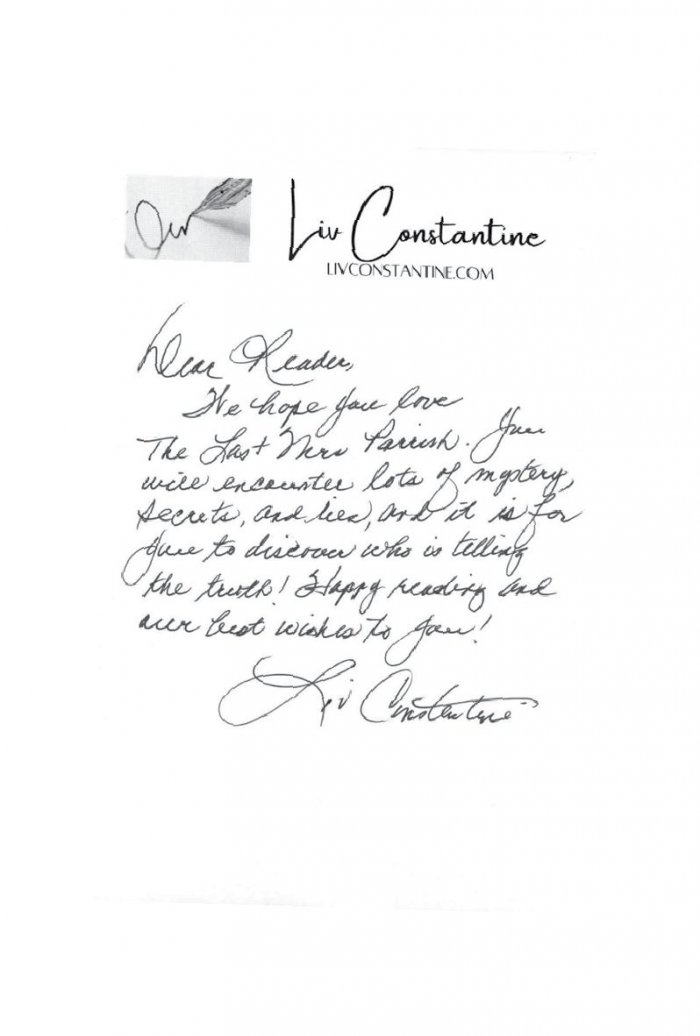 Liv
Liv Constantine
LIVCONSTANTINE.COM
Dear Reader,
We hope you love
The Last Mrs Parrish. You
will encounter lots of mystery,
secrets, and lies, and it is for
you to discover who is telling
the truth! Happy reading and
our best wishes to you!
Liv Constantine